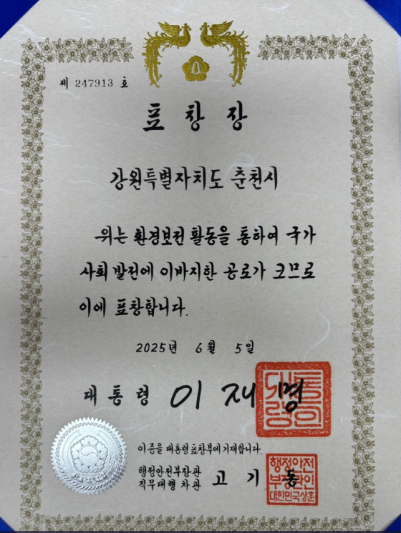 제 247913 호
표창장
강원특별자치도 춘천시
위는 환경보전 활동을 통하여 국가
사회 발전에 이바지한 공로가 크므로
이에 표창합니다.
2025년 6월 5일
대통령 이재명
이 증을 대통령표창부에 기재합니다.
행정안전부장관
직무대행 차관 고기동
행정안전
부장관인
대한민국상훈